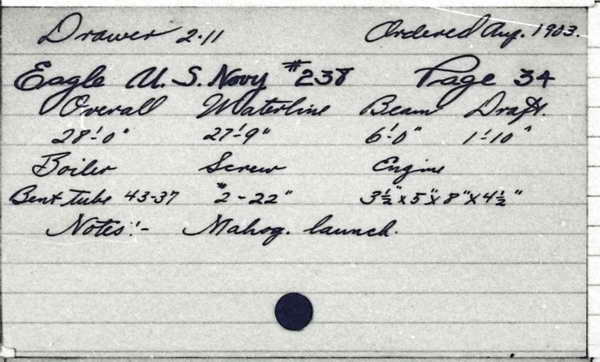 Drawer 2-11 Ordered Aug. 1903.
Eagle U. S. Navy #238 Page 34
Overall Waterline Beam Draft.
28'-0" 27'-9" 6'-0" 1'-10"
Boiler Screw Engine
Bent Tube 43-37 #2-22" 3½"x5"x8"x4½"
Notes:- Mahog. launch.